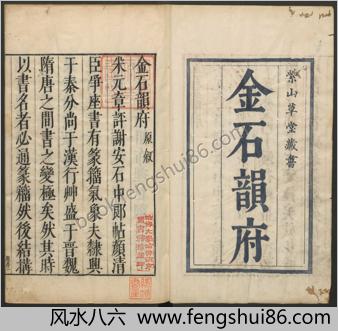 紫山草堂藏書
金石韻府
金石韻府 原叙
朱元章評謝安石中郎帖顔清
臣爭座書有篆籀氣象夫隸興
于秦分尚于漢行艸盛于晉魏
隋唐之間書之變極矣然其時
以書名者必通篆籀然後結搆
book.fengshui86.com
风水八六 www.fengshui86.com